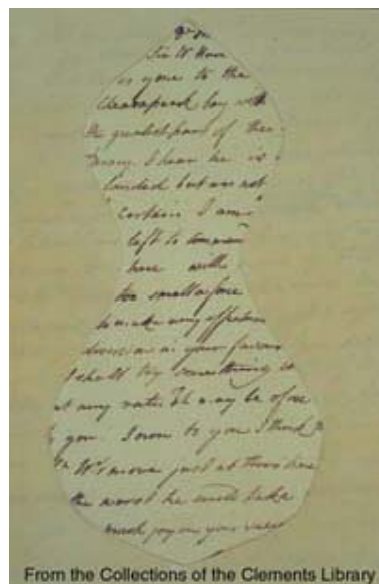 Sir W Howe
is gone to the
Chesapeak bay with
the greatest part of the
army. I hear he is
landed but am not
certain. I am
left to command
here with
too small a force
to make any effectual
diversion in your favour
I shall try something at
at any rate. It may be of use
to you. I own to you I think
Sr W's move just at this time
the worst he could take
much joy on your
From the Collections of the Clements Library